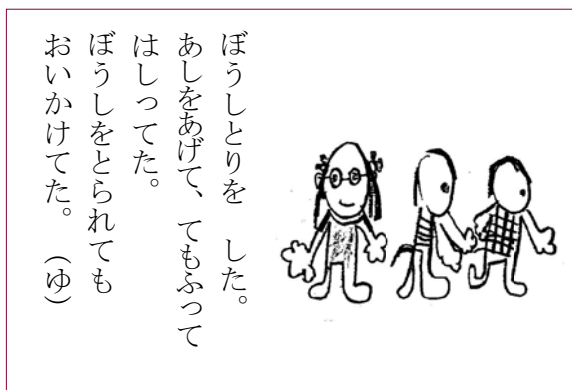 ぼうしとりを　した。
あしをあげて、てもふって
はしってた。
ぼうしをとられても
おいかけてた。　（ゆ）